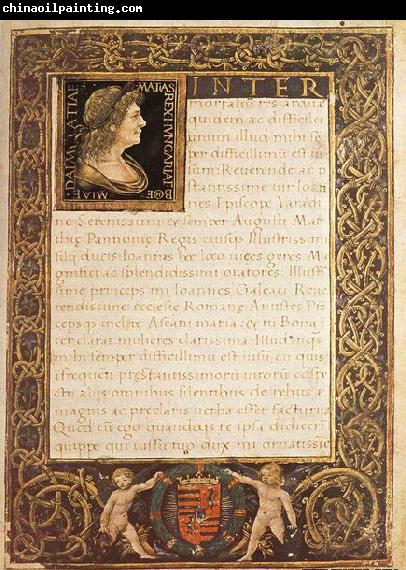 chinaoilpainting.com
MATIAS REX HVNGARIAE
INTER
mortales res ardua
quidem ac difficiles
unum illud mihi se
per difficillimu est
sum: Reuerende ac p
stantissime uir Ioan
nes Episcope Varadi
ne Serenissimi et semper Augusti Mat
thie Pannonie Regis eiusq Illustrissimi
filij ducis Ioannis hoc loco uices gerens Ma
gnifici ac splendidissimi oratores: Illustriss
sime princeps mi Ioannes Galeaz Reue
rendissime ecclesie Romane Antistes Pri
cepsq inclite Ascani maria: et tu Bona
ter claras mulieres clarissima Illud inq
mihi semper difficillimu est uisu, cu quis
i frequeti prestantissimoru uiroru
omnibus silentibus de rebus
magnis ac preclaris uerba esset facturus
Quod cu ego quandoq re ipsa didicerim
quippe qui iussu tuo dux mi ornatissie